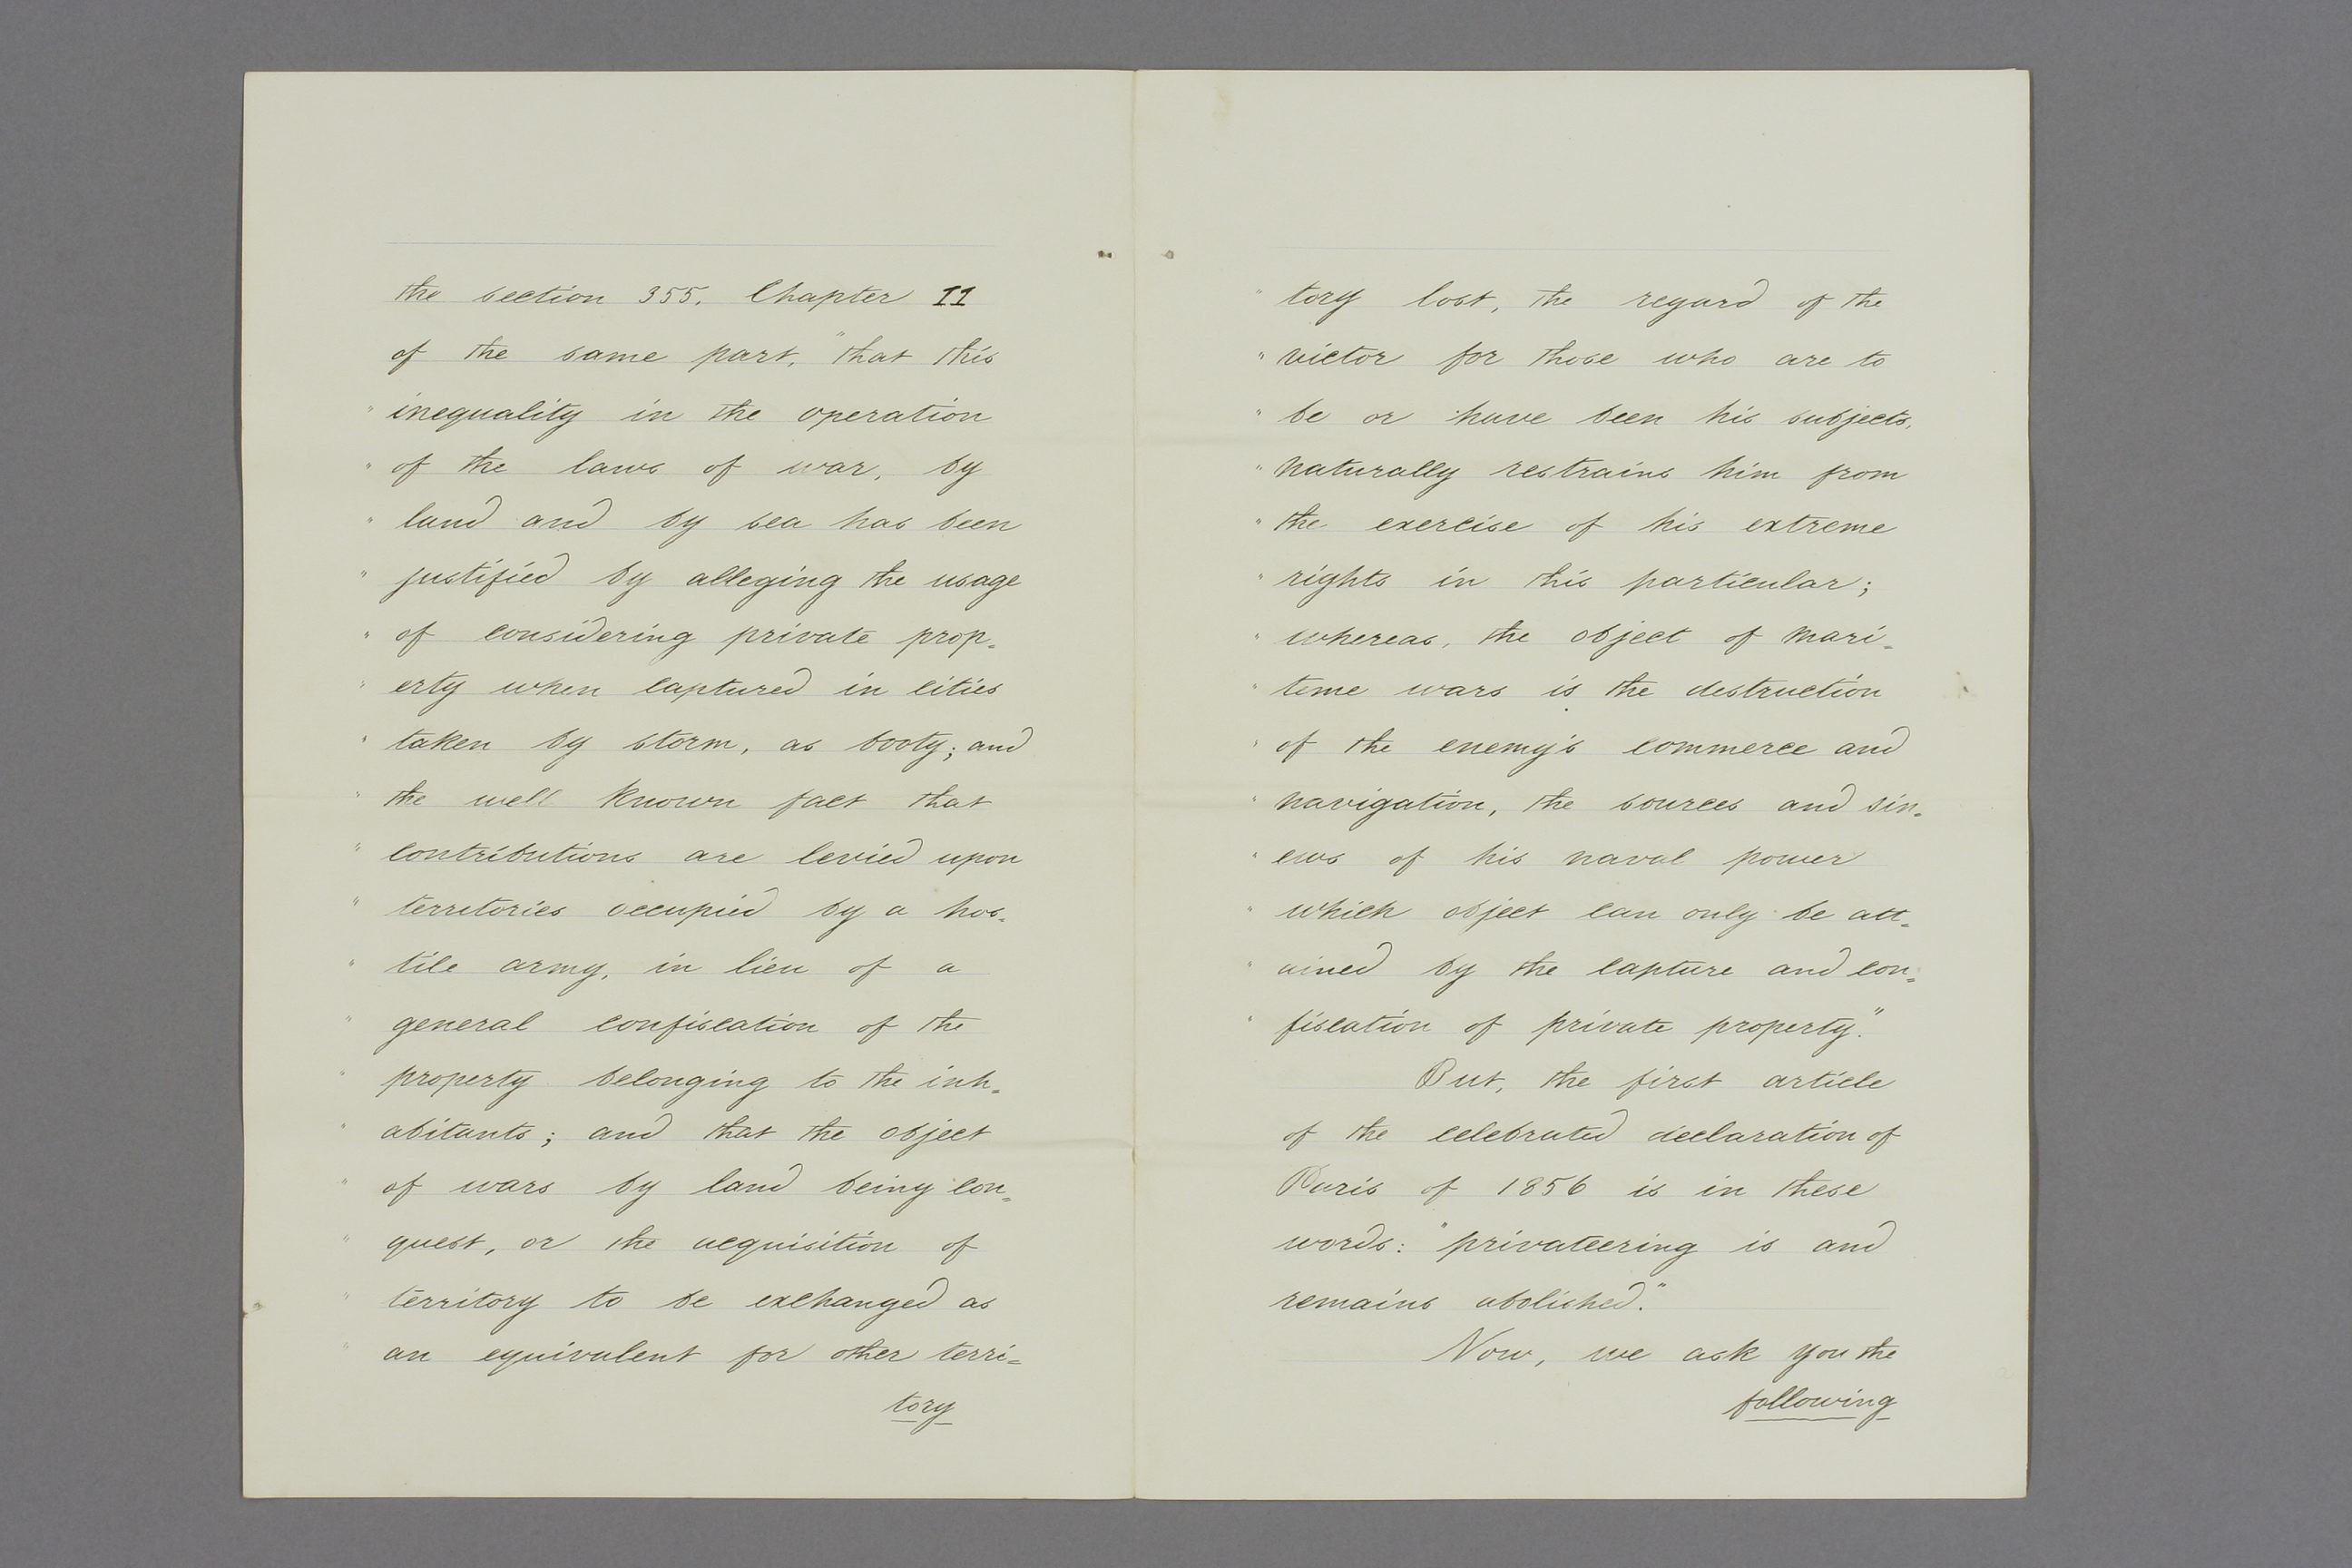 the section 355. Chapter II
of the same part, "that this
" inequality in the operation
" of the laws of war, by
" land and by sea has been
" justified by alleging the usage
" of considering private prop=
" erty when captured in cities
" taken by storm, as booty; and
" the well known fact that
" contributions are levied upon
" territories occupied by a hos=
" tile army, in lieu of a
" general confiscation of the
" property belonging to the inh=
" abitants; and that the object
" of wars by land being con=
" quest, or the acquisition of
" territory to be exchanged as
" an equivalent for other terri=
tory
" tory lost, the regard of the
" victor for those who are to
" be or have been his subjects,
" naturally restrains him from
" the exercise of his extreme
" rights in this particular;
" whereas, the object of mari=
" time wars is the destruction
" of the enemy's commerce and
" navigation, the sources and sin=
" ews of his naval power
" which object can only be att=
" ained by the capture and con=
" fiscation of private property."
But, the first article
of the celebrated declaration of
Paris of 1856 is in these
words: "privateering is and
remains abolished."
Now, we ask you the
following